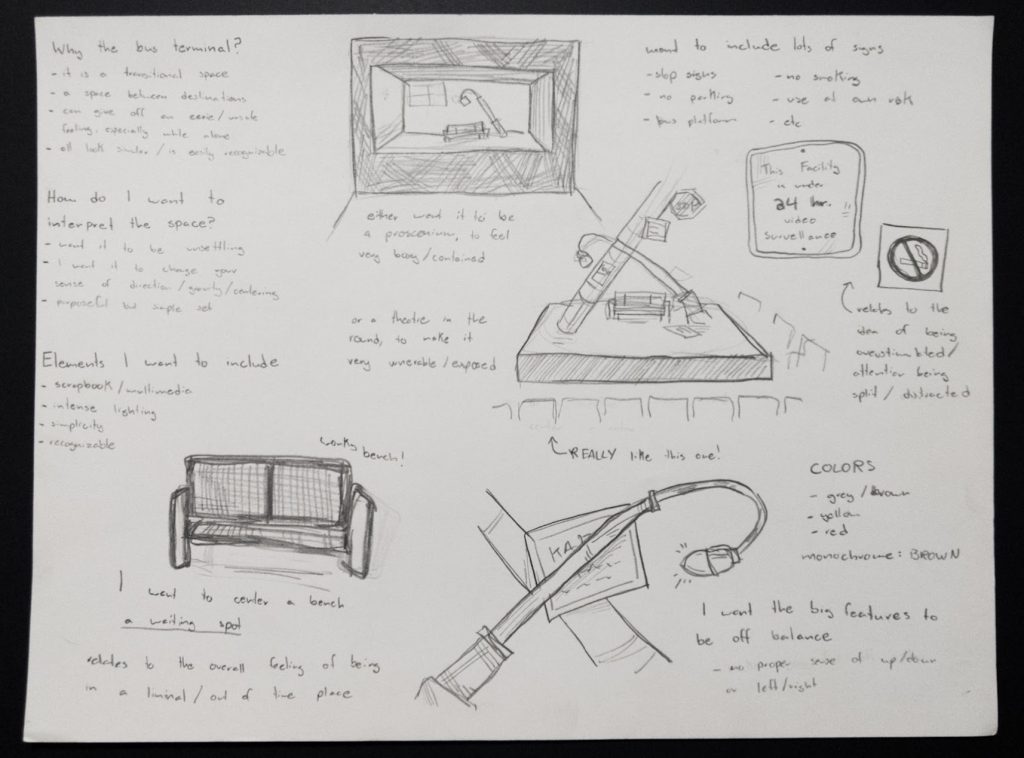 Why the bus terminal?
- it is a transitional space
- a space between destinations
- can give off an eerie/unsafe
feeling, especially while alone.
- all look similar / is easily recognizable
How do I want to
interpret the space?
- want it to be unsettling
- I want it to change your
sense of direction/gravity/centering
- purposeful but simple set
Elements I want to include
- scrapbook/multimedia
- intense lighting
- simplicity
- recognizable
either want it to be
a proscenium, to feel
very boxy/contained
or a theatre in the
round, to make it
very vunerable/exposed
want to include lots of signs
- stop signs
- no parking
- bus platform
- no smoking
- use at own risk
- etc
STOP
This Facility
is under
24 hr.
video
Surveillance
relates to the
idea of being
overstimulated/
attention being
split / distracted
REALLY like this one!
bench!
I want to center a bench
a waiting spot
relates to the overall feeling of being
in a liminal / out of time place
COLORS
- grey/brown
- yellow
- red
monochrome: BROWN
I want the big features to
be off balance
- no proper sense of up/down
or left/right